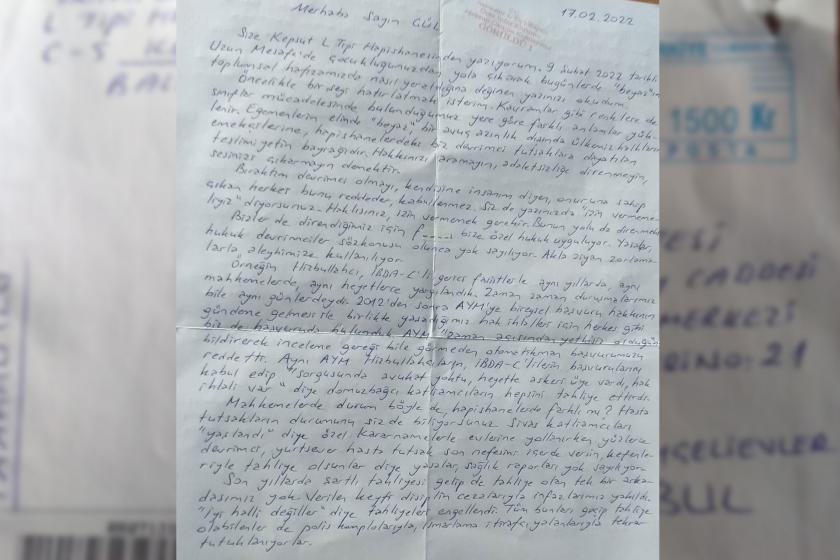 Merhaba Sayın Gül,
17.02.2022
GÖRÜLDÜ
Size Kepsut L Tipi Hapishanesinden yazıyorum. 9 Şubat 2022 tarihli
Uzun Mesafe'de çocukluğunuzdan yola çıkarak bugünlerde "beyaz"ın
toplumsal hafızamızda nasıl yer aldığına değinen yazınızı okudum.
Öncelikle bir şeyi hatırlatmak isterim. Kavramlar gibi renklere de
sınıflar mücadelesinde bulunduğumuz yere göre farklı anlamlar yük-
lenir. Egemenlerin elinde "beyaz" bir avuç azınlık dışında ülkemiz halkların
emekçilerine, hapishanelerdeki biz devrimci tutsaklara dayatılan
teslimiyetin bayrağıdır. Hakkınızı aramayın, adaletsizliğe direnmeyin,
sesinizi çıkarmayın demektir.
Bıraktım devrimci olmayı, kendisine insanım diyen, onuruna sahip
çıkan herkes bunu reddeder, kabullenmez. Siz de yazınızda "izin vermeme-
liyiz" diyorsunuz. Haklısınız, izin vermemek gerekir. Bunun yolu da direnmek
Bizler de direndiğimiz için f----- bize özel hukuk uyguluyor. Yasalar,
hukuk devrimciler sözkonusu olunca yok sayılıyor. Akla ziyan zorlama-
larla aleyhimize kullanılıyor.
Örneğin Hizbullahçı, İBDA-C'li gerici faşistlerle aynı yıllarda, aynı
mahkemelerde, aynı heyetlerce yargılandık. Zaman zaman duruşmalarımız
bile aynı günlerdeydi. 2012'den sonra AYM'ye bireysel başvuru hakkının
gündeme gelmesiyle birlikte yaşadığımız hak ihlalleri için herkes gibi
biz de başvuruda bulunduk. AYM "zaman açısından yetkisiz olduğunu
bildirerek inceleme gereği bile görmeden otomatikman başvurumuzu
reddetti. Aynı AYM Hizbullahçıların, İBDA-C'lilerin başvurularını
kabul edip "sorgusunda avukat yoktu, heyette askeri üye vardı, hak
ihlali var" diye domuzbağcı katliamcıların hepsini tahliye ettirdi.
Mahkemelerde durum böyle de, hapishanelerde farklı mı? Hasta
tutsakların durumunu siz de biliyorsunuz. Sivas katliamcıları
"yaşlandı" diye özel kararnamelerle evlerine yollanırken yüzlerce
devrimci, yurtsever hasta tutsak son nefesini içerde versin, kefenle-
riyle tahliye olsunlar diye yasalar, sağlık raporları yok sayılıyor.
Son yıllarda şartlı tahliyesi gelip de tahliye olan tek bir arka-
daşımız yok. Verilen keyfi disiplin cezalarıyla infazlarımız yakıldı.
"İyi halli değiller" diye tahliyeleri engellendi. Tüm bunları geçip tahliye
olabilenler de polis komplolarıyla, ısmarlama itirafçı yalanlarıyla tekrar
tutuklanıyorlar.
L Tipi
C-5
BAL
1500 Kr
POSTA
CADDESİ
MERKEZİ
NO: 21
BUL